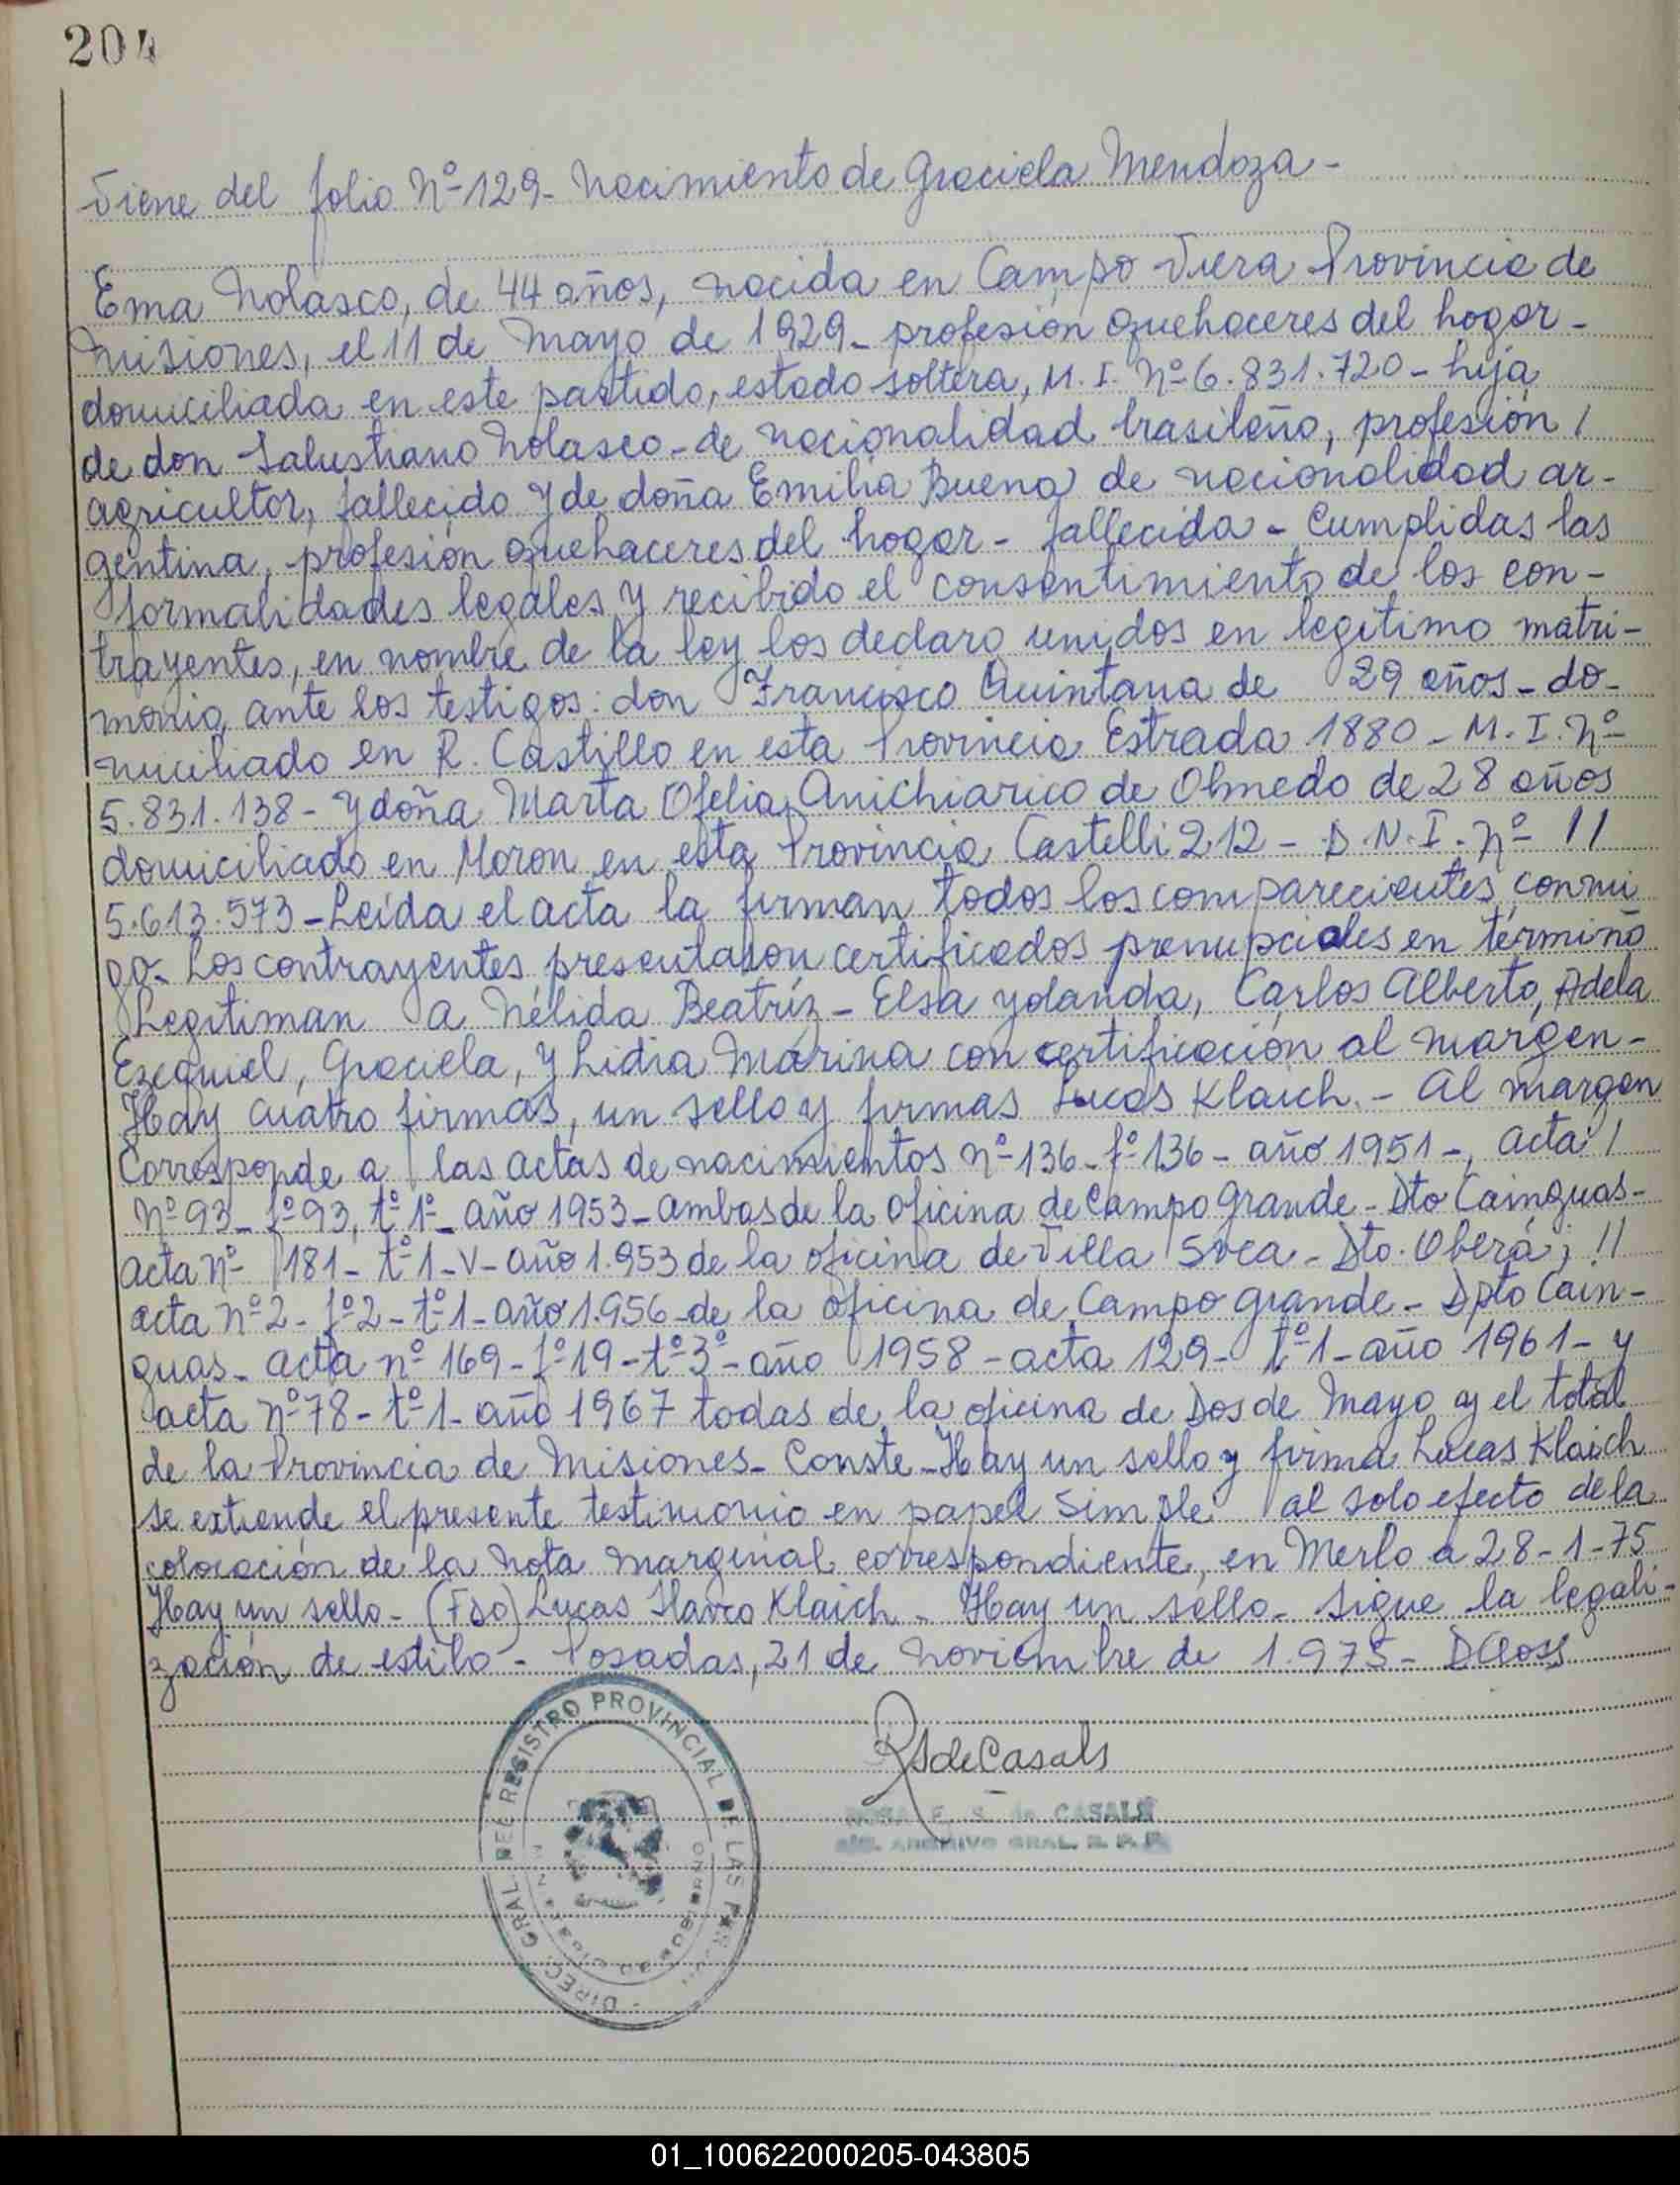 204
Viene del folio Nº 129- Nacimiento de Graciela Mendoza-
Ema Nolasco, de 44 años, nacida en Campo Viera Provincia de
Misiones, el 11 de Mayo de 1929- profesión quehaceres del hogar-
domiciliada en este partido, estado soltera, M. I. Nº 6.831.720- hija
de don Salustiano Nolasco- de nacionalidad brasileño, profesión /
agricultor, fallecido y de doña Emilia Buena de nacionalidad ar-
gentina, profesión quehaceres del hogar- fallecida- Cumplidas las
formalidades legales y recibido el consentimiento de los con-
trayentes, en nombre de la ley los declaro unidos en legítimo matri-
monio, ante los testigos: don Francisco Quintana de 29 años- do-
miciliado en R. Castillo en esta Provincia Estrada 1880- M. I. Nº
5.831.138- y doña Marta Ofelia Anichiarico de Olmedo de 28 años
domiciliado en Moron en esta Provincia Castelli 212- D.N.I. Nº //
5.613.573- Leída el acta la firman todos los comparecientes conmi
go- Los contrayentes presentaron certificados prenupciales en término
Legitiman a Nélida Beatríz- Elsa yolanda, Carlos Alberto, Adela
Ezequiel, Graciela, y Lidia Marina con certificación al margen-
Hay cuatro firmas, un sello y firmas Lucas Klaich.- Al margen
Corresponde a las actas de nacimientos nº 136- fº 136- año 1951-, acta /
Nº 93- fº 93, tº 1º- año 1953- ambas de la oficina de Campo Grande- Dto Cainguas-
acta nº 181- tº 1- V- año 1.953 de la oficina de Villa Svea- Dto. Oberá; //
acta nº 2- fº 2- tº 1- año 1.956- de la oficina de Campo Grande- Dpto Cain-
guas- acta nº 169- fº 19- tº 3º- año 1958- acta 129- tº 1- año 1961- y
acta nº 78- tº 1- año 1967 todas de la oficina de Dos de Mayo y el total
de la Provincia de Misiones- Conste- Hay un sello y firma Lucas Klaich
se extiende el presente testimonio en papel simple al solo efecto de la
colocación de la nota marginal correspondiente, en Merlo a 28-1-75
Hay un sello- (Fdo) Lucas Klaich- Hay un sello- sigue la legali-
zación de estilo- Posadas, 21 de Noviembre de 1.975-
RSdeCasals
E. S. de CASALS
ARCHIVO GRAL. R. P. P.
DIREC. GRAL. DEL REGISTRO PROVINCIAL DE LAS
01_100622000205-043805